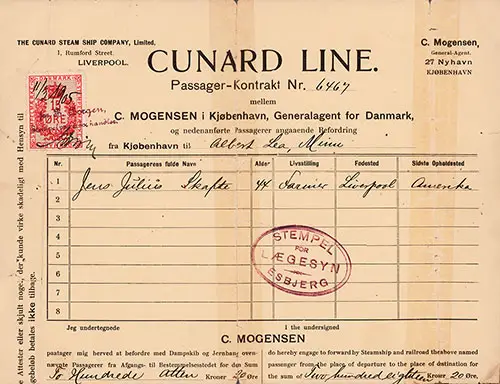 THE CUNARD STEAM SHIP COMPANY, Limited.
1, Rumford Street.
LIVERPOOL.
CUNARD LINE.
C. Mogensen,
General-Agent.
27 Nyhavn
KJØBENHAVN
Passager-Kontrakt Nr. 6467
mellem
C. MOGENSEN i Kjøbenhavn, Generalagent for Danmark,
og nedenanførte Passagerer angaaende Befordring
fra Kjøbenhavn til Albert Lea, Minn
DANMARK
10
ØRE
Nr. Passagerens fulde Navn Alder Livsstilling Fødested Sidste Opholdssted
1 Jens Julius Skafte 44 Farmer Liverpool Amerika
2
3
4
5
6
7
8
STEMPEL
FOR
LÆGESYN
ESBJERG
Jeg undertegnede I the undersigned
C. MOGENSEN
paatager mig herved at befordre med Dampskib og Jernbane ovennævnte Passagerer fra Afgangs- til Bestemmelsesstedet for den Sum
To Hundrede Atten Kroner 20 Øre
do hereby engage to forward by Steamship and railroad the above named passenger from the place of departure to the place of destination for the sum of Two hundred eighteen Kroner 20 Øre
e Attester eller skjult noge, der kunde virke skadeligt med Hensyn til
gebeløb betales ikke tilbage.